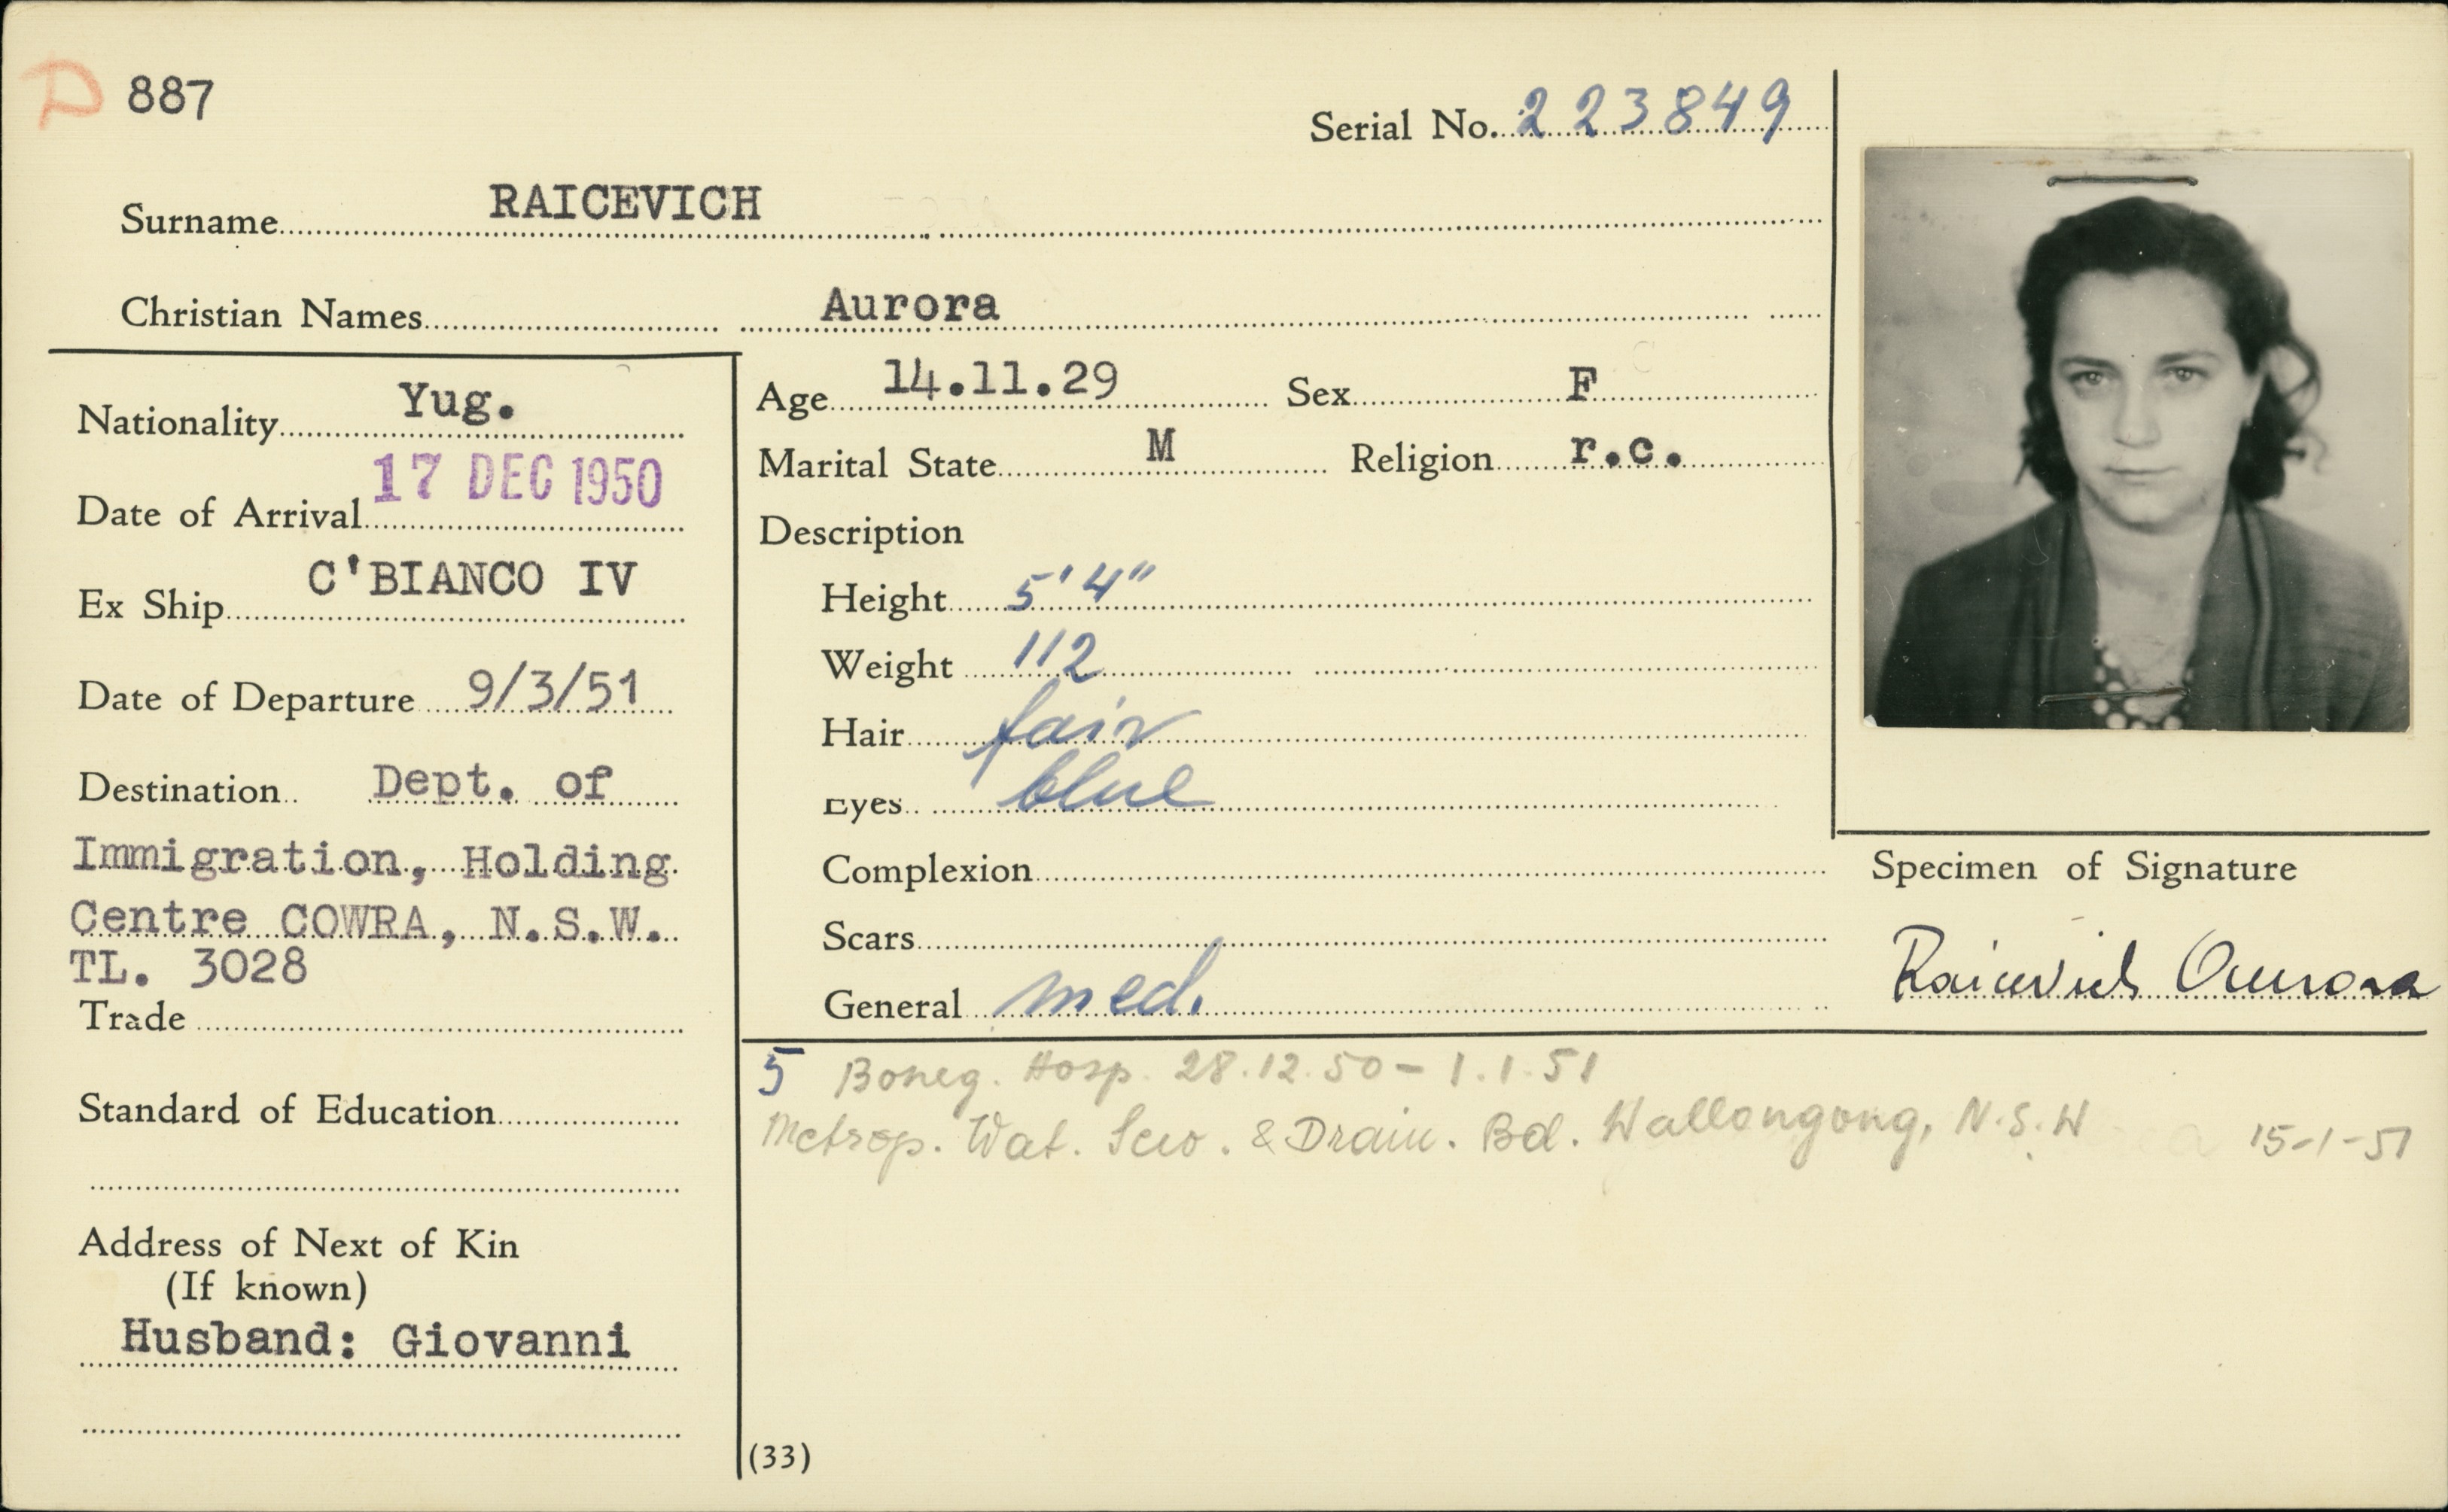 D 887
Serial No. 223849
Surname RAICEVICH
Christian Names Aurora
Nationality Yug.
Date of Arrival 17 DEC 1950
Ex Ship C'BIANCO IV
Date of Departure 9/3/51
Destination Dept. of
Immigration, Holding
Centre COWRA, N.S.W.
TL. 3028
Trade
Standard of Education
Address of Next of Kin
(If known)
Husband: Giovanni
Age 14.11.29 Sex F
Marital State M Religion r.c.
Description
Height 5'4"
Weight 112
Hair fair
Eyes blue
Complexion
Scars
General med.
Specimen of Signature
Raicevich Aurora
5 Boneg. Hosp. 28.12.50 - 1.1.51
Metrop. Wat. Sew. & Drain. Bd. Wallongong, N.S.W 15-1-51
(33)